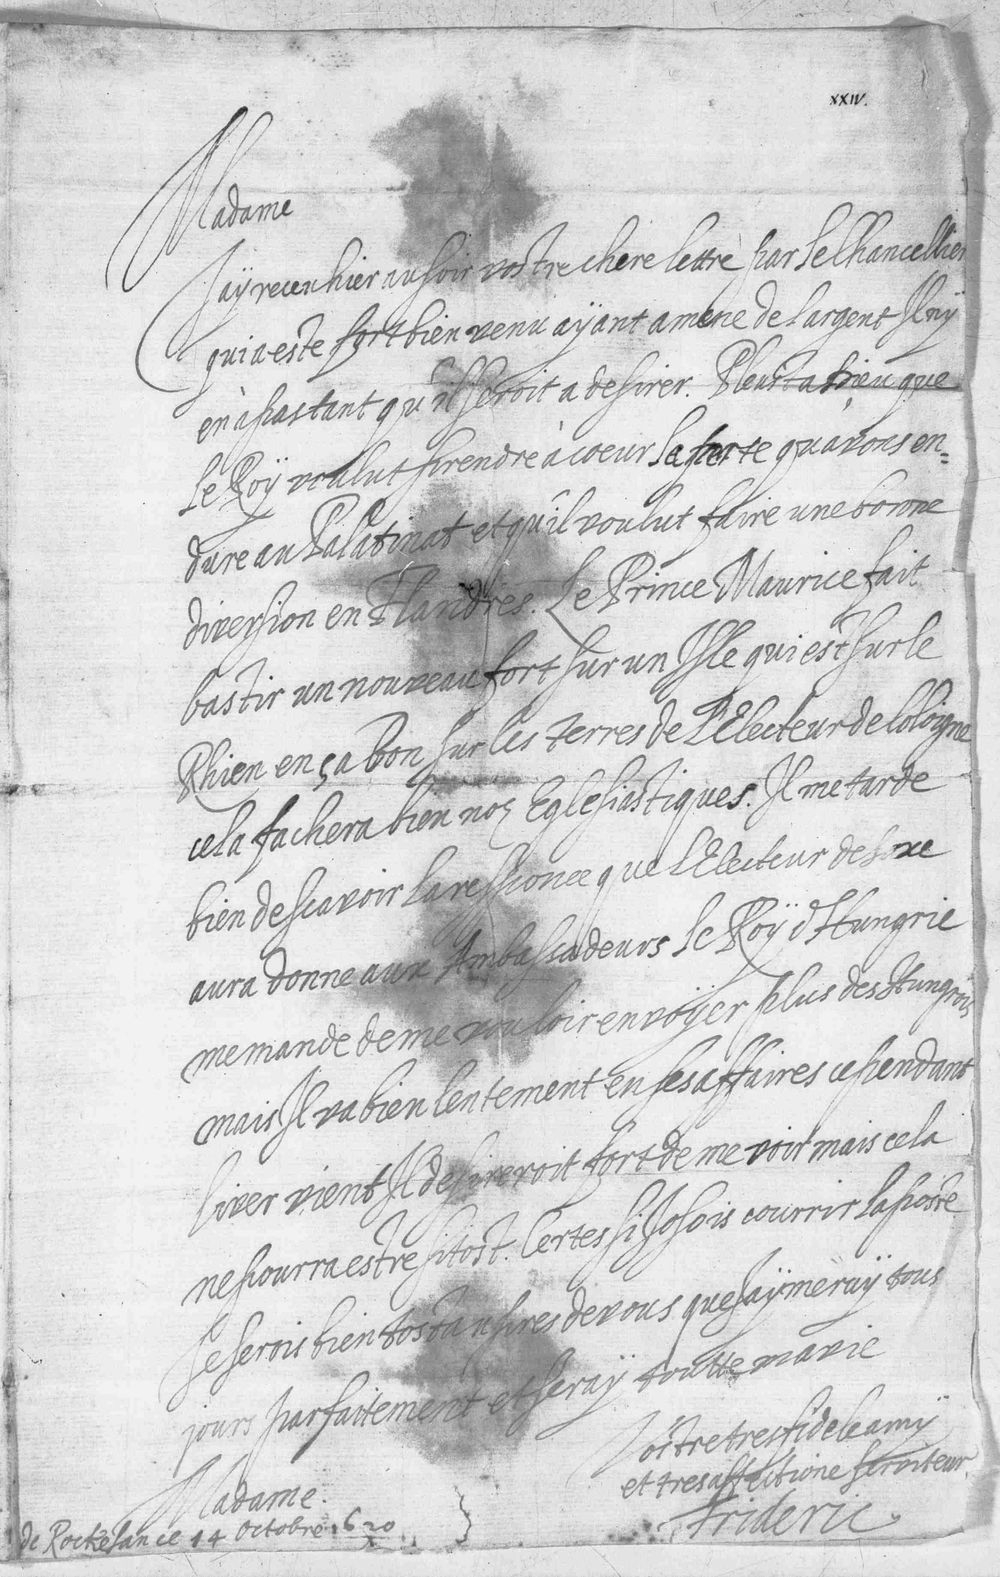 XXIV.
Madame
Jay receu hier au soir vostre chere lettre par le Chancellier
qui a este fort bien venu ayant amene de largent Il ny
en à pas tant qu'il seroit a desirer. Pleust a dieu que
le Roÿ voulut prendre à coeur la perte qu'avons en=
dure au Palatinat et qu'il voulut faire une bonne
diversion en Flandres. Le Prince Maurice fait
bastir un nouveau fort sur un Isle qui est sur le
Rhien en ça Bon sur les terres de l'Electeur de Coloigne
cela fachera bien noz Eglesiastiques. Il me tarde
bien de scavoir la responce que l'Electeur de Saxe
aura donne aux Ambassadeurs le Roÿ d'Hungrie
me mande de me vouloir envoÿer plus des Hungrois
mais Il va bien lentement en ses affaires cependant
liver vient Il desireroit fort de me voir mais cela
ne pourra estre si tost. Certes si Josois courrir la poste
Je serois bien tost au pres de vous que Jaÿmeraÿ tous
jours parfaitement et seraÿ toutte ma vie
Madame.
Vostre tres fidele amÿ
et tres affectione serviteur
Frideric.
de Rockesance 14 Octobre 1620